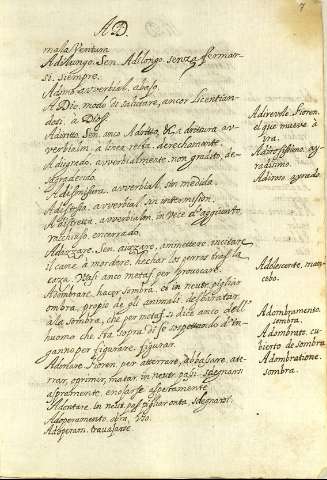 A D.
7
mala Ventura
Adilungo. Sen. Adilongo. senza fermar-
si. siempre.
Adimo. avverbial. abaso.
A Dio, modo di salutare, ancor Licentian-
dosi. à Dios.
Adiritto. Sen. anco Adritto, & a drittura av-
verbialm. à linea recta. derechamente.
Adigrado, avverbialmente non gradito, de-
sgradecido.
A dismisura. avverbial. sin medida.
A distesa. avverbial. sin intermision.
A distretta. avverbialm. in vece d'aggiunto
rinchiuso, encerrado.
Adizzare. Sen. aizzare, ammettere, incitare
il cane à mordere, hechar los perros tras la
caza. Usasi anco metaf. per provocare.
Adombrare, hacer sombra, et in neutr. pigliar
ombra, propio de gli animali. desbaratar
a la sombra, che per metaf. si dice anco dell'
huomo che sta sopra di se sospettando d'in-
ganno per figurare, figurar.
Adontare Fioren. per atterrare, abbassare, ater-
rar, oprimir, matar. in neutr. pass. sdegnarsi
aspramente, enojarse aspetamente.
Adontare. in neutr. pass. pigliar onta, sdegnarsi.
Adoperamento. obra, uso.
Adoperam. travasarse
Adirevole. Fioren.
el que mueve à
ira.
Adirosissimo. ay-
radissimo.
Adiroso. ayrado.
Adolecente. man-
cebo.
Adombramento.
sombra.
Adombrato. cu-
bierto de sombra
Adombratione.
sombra.